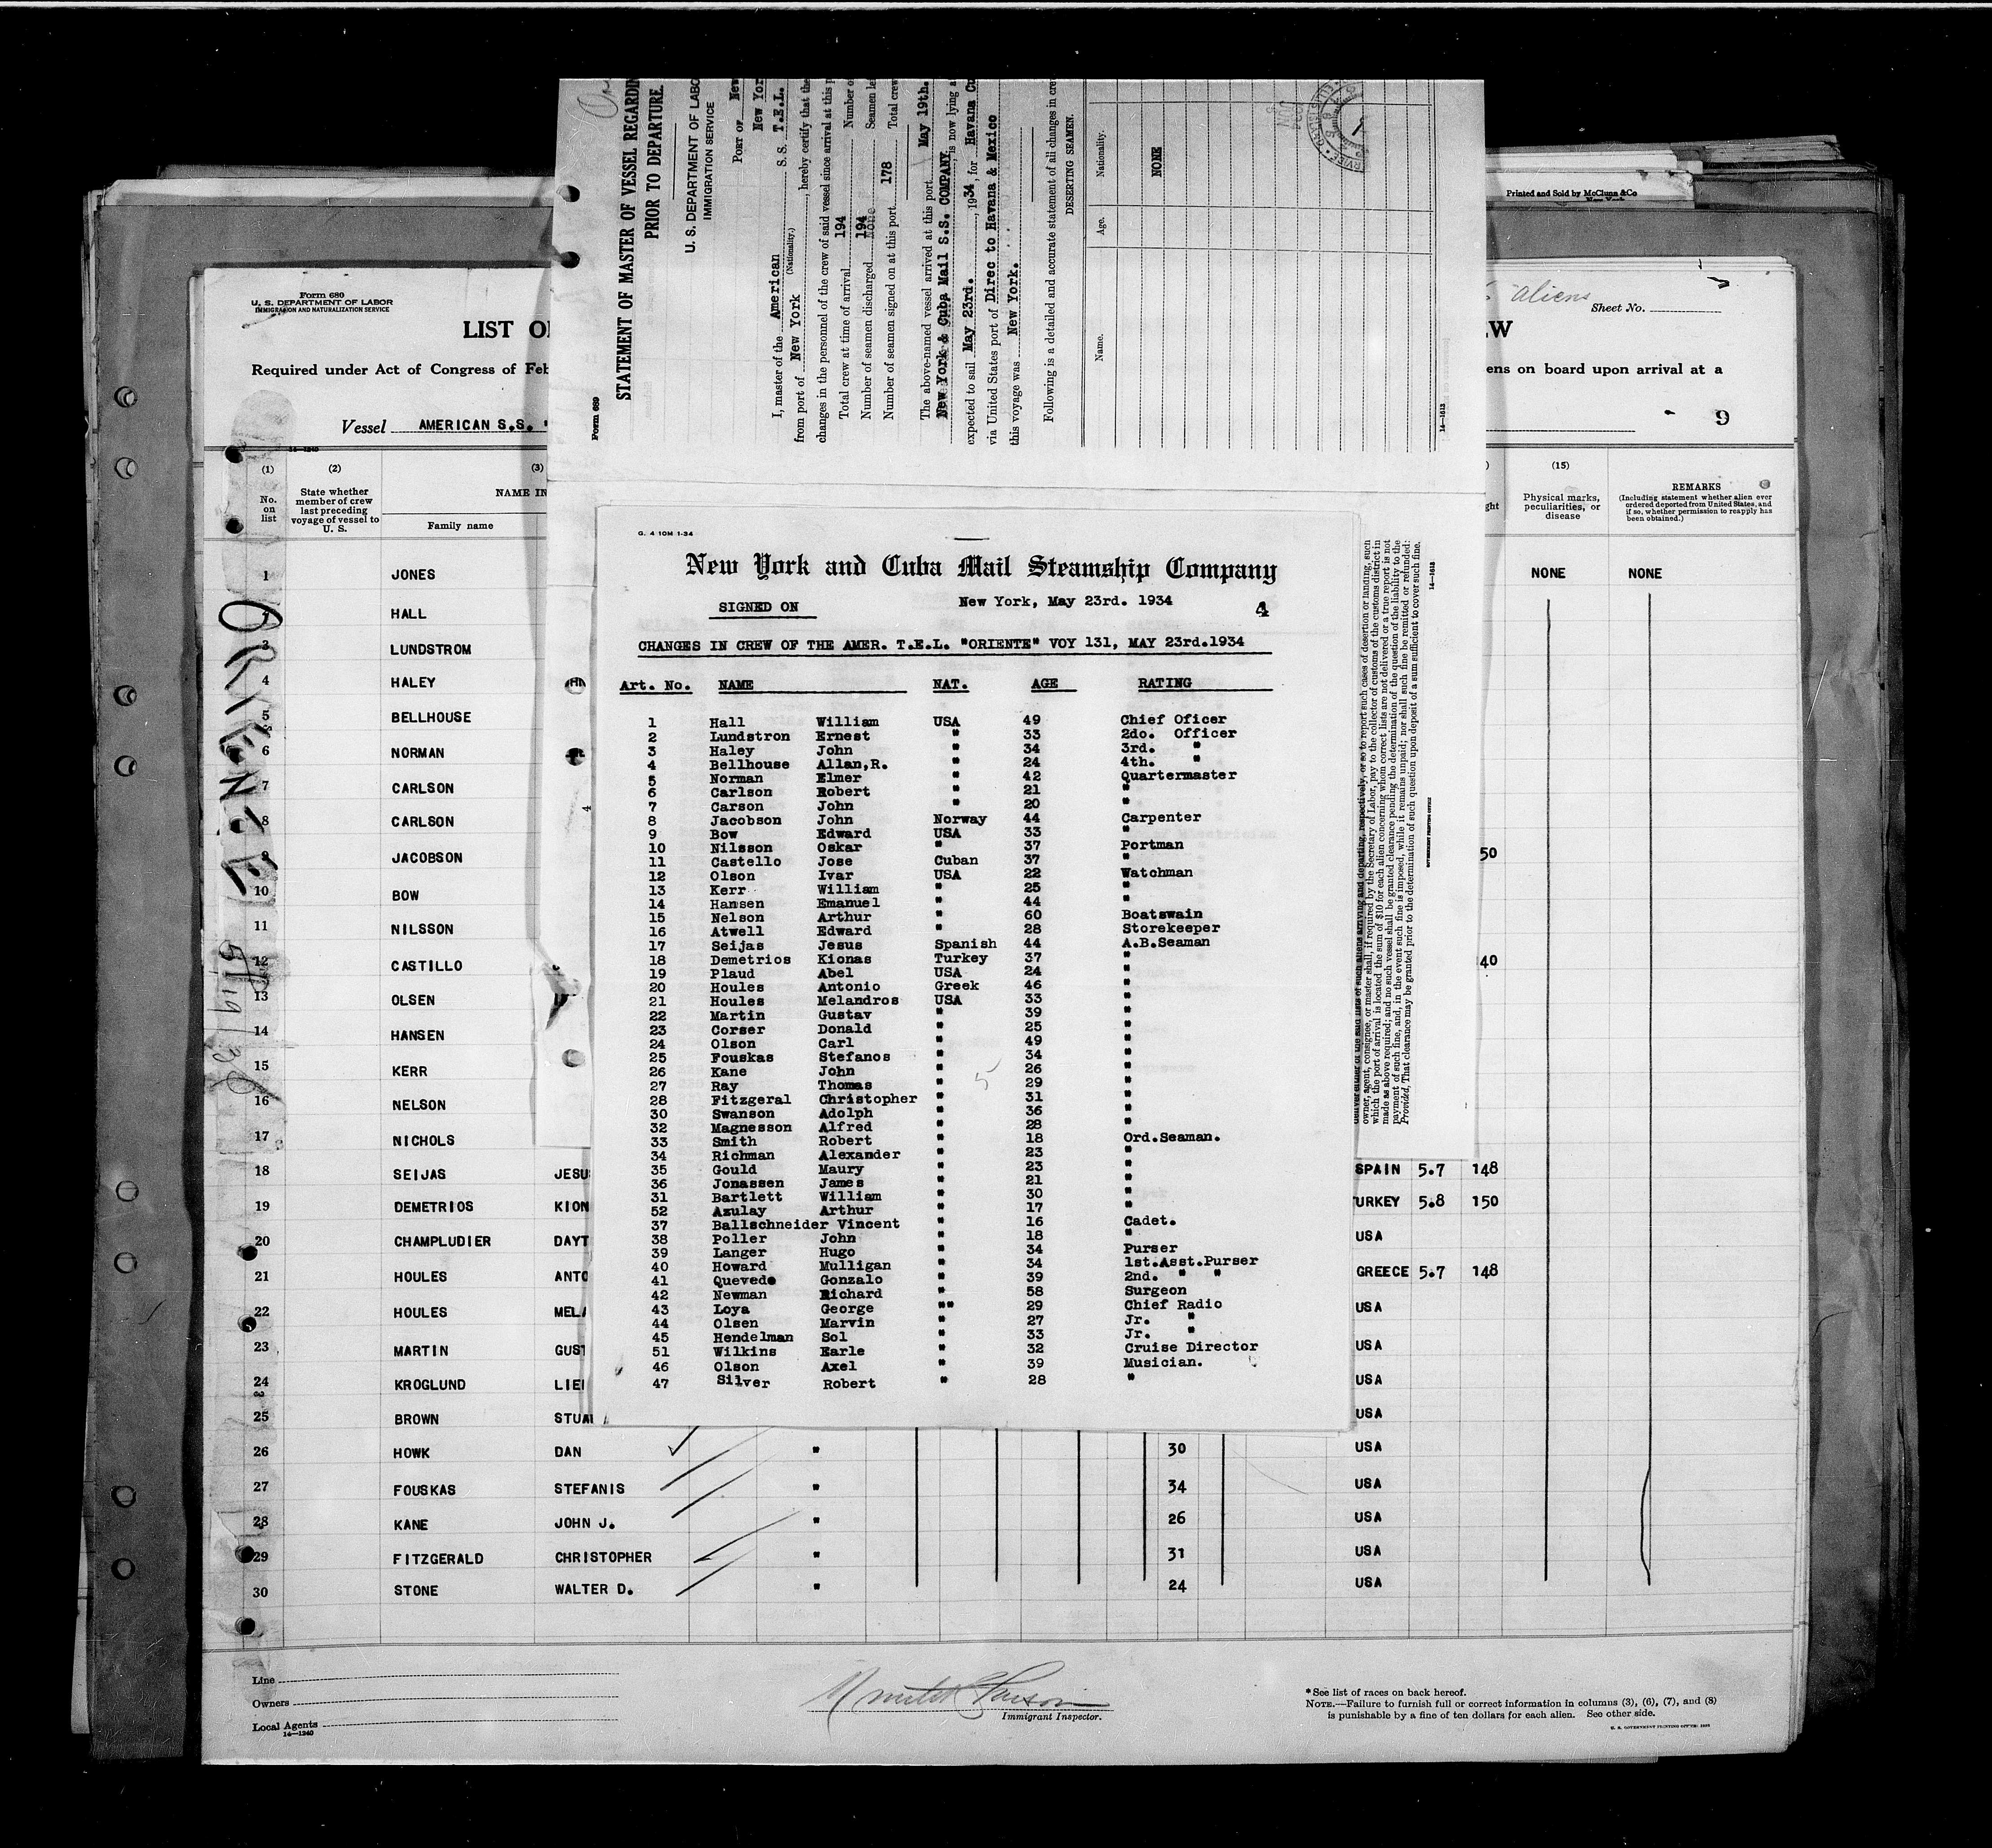 Form 680
U. S. DEPARTMENT OF LABOR
IMMIGRATION AND NATURALIZATION SERVICE
LIST
Required under Act of Congress of
Vessel AMERICAN S.S.
14—1240
(1) (2) (3)
No. on list
State whether member of crew last preceding voyage of vessel to U. S.
NAME IN
Family name
1 JONES
HALL
LUNDSTROM
4 HALEY
5 BELLHOUSE
6 NORMAN
7 CARLSON
8 CARLSON
9 JACOBSON
10 BOW
11 NILSSON
12 CASTILLO
13 OLSEN
14 HANSEN
15 KERR
16 NELSON
17 NICHOLS
18 SEIJAS JESU SPAIN 5.7 148
19 DEMETRIOS KION URKEY 5.8 150
20 CHAMPLUDIER DAYT USA
21 HOULES ANTO GREECE 5.7 148
22 HOULES MEL USA
23 MARTIN GUST USA
24 KROGLUND LIE USA
25 BROWN STUA USA
26 HOWK DAN " 30 USA
27 FOUSKAS STEFANIS " 34 USA
28 KANE JOHN J. " 26 USA
29 FITZGERALD CHRISTOPHER " 31 USA
30 STONE WALTER D. " 24 USA
ORIENTE
5/19/34
Line
Owners
Local Agents
14—1240
Immigrant Inspector.
*See list of races on back hereof.
NOTE.—Failure to furnish full or correct information in columns (3), (6), (7), and (8)
is punishable by a fine of ten dollars for each alien. See other side.
Form 689
STATEMENT OF MASTER OF VESSEL REGARDIN
PRIOR TO DEPARTURE.
U. S. DEPARTMENT OF LABO
IMMIGRATION SERVICE
PORT OF New
New Yor
I, master of the American S. S. T.E.L.
(Nationality.)
from port of New York, hereby certify that the
changes in the personnel of the crew of said vessel since arrival at this
Total crew at time of arrival 194 Number
Number of seamen discharged 194 None Seamen
Number of seamen signed on at this port 178 Total crew
The above-named vessel arrived at this port May 19th.
New York & Cuba Mail S.S. COMPANY, is now lying
expected to sail May 23rd., 1934, for Havana
via United States port of Direc to Havana & Mexico
this voyage was New York.
Following is a detailed and accurate statement of all changes in
DESERTING SEAMEN.
Name. Age. Nationality.
NONE
14—1613
G. 4 10M 1-34
New York and Cuba Mail Steamship Company
SIGNED ON New York, May 23rd. 1934 4
CHANGES IN CREW OF THE AMER. T.E.L. "ORIENTE" VOY 131, MAY 23rd.1934
Art. No. NAME NAT. AGE RATING
1 Hall William USA 49 Chief Oficer
2 Lundstron Ernest " 33 2do. Officer
3 Haley John " 34 3rd. "
4 Bellhouse Allan,R. " 24 4th. "
5 Norman Elmer " 42 Quartermaster
6 Carlson Robert " 21 "
7 Carson John " 20 "
8 Jacobson John Norway 44 Carpenter
9 Bow Edward USA 33 "
10 Nilsson Oskar " 37 Portman
11 Castello Jose Cuban 37 "
12 Olson Ivar USA 22 Watchman
13 Kerr William " 25 "
14 Hansen Emanuel " 44 "
15 Nelson Arthur " 60 Boatswain
16 Atwell Edward " 28 Storekeeper
17 Seijas Jesus Spanish 44 A.B.Seaman
18 Demetrios Kionas Turkey 37 "
19 Plaud Abel USA 24 "
20 Houles Antonio Greek 46 "
21 Houles Melandros USA 33 "
22 Martin Gustav " 39 "
23 Corser Donald " 25 "
24 Olson Carl " 49 "
25 Fouskas Stefanos " 34 "
26 Kane John " 26 "
27 Ray Thomas " 29 "
28 Fitzgeral Christopher " 31 "
30 Swanson Adolph " 36 "
32 Magnesson Alfred " 28 "
33 Smith Robert " 18 Ord.Seaman.
34 Richman Alexander " 23 "
35 Gould Maury " 23 "
36 Jonassen James " 21 "
31 Bartlett William " 30 "
52 Azulay Arthur " 17 "
37 Ballschneider Vincent " 16 Cadet.
38 Poller John " 18 "
39 Langer Hugo " 34 Purser
40 Howard Mulligan " 34 1st.Asst.Purser
41 Quevedo Gonzalo " 39 2nd. " "
42 Newman Richard " 58 Surgeon
43 Loya George "" 29 Chief Radio
44 Olsen Marvin " 27 Jr. "
45 Hendelman Sol " 33 Jr. "
51 Wilkins Earle " 32 Cruise Director
46 Olson Axel " 39 Musician.
47 Silver Robert " 28 "
5
owner, agent, consignee, or master shall, if required by the Secretary of Labor, pay to the collector of customs of the customs district in
which the port of arrival is located the sum of $10 for each alien concerning whom correct lists are not delivered or a true report is not
made as above required; and no such vessel shall be granted clearance pending the determination of the question of the liability to the
payment of such fine, and, in the event such fine is imposed, while it remains unpaid; nor shall such fine be remitted or refunded:
Provided, That clearance may be granted prior to the determination of such question upon deposit of a sum sufficient to cover such fine.
14—1613
Printed and Sold by McClung &Co
New York
aliens
Sheet No.
EW
ens on board upon arrival at a
9
(15)
Physical marks, peculiarities, or disease
REMARKS
(Including statement whether alien ever ordered deported from United States, and if so, whether permission to reapply has been obtained.)
NONE NONE
50
40